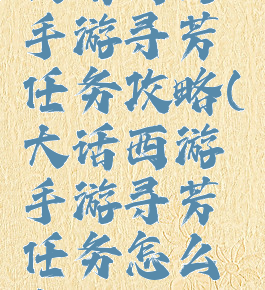 手游寻芳
任务攻略(
大话西游
手游寻芳
任务怎么